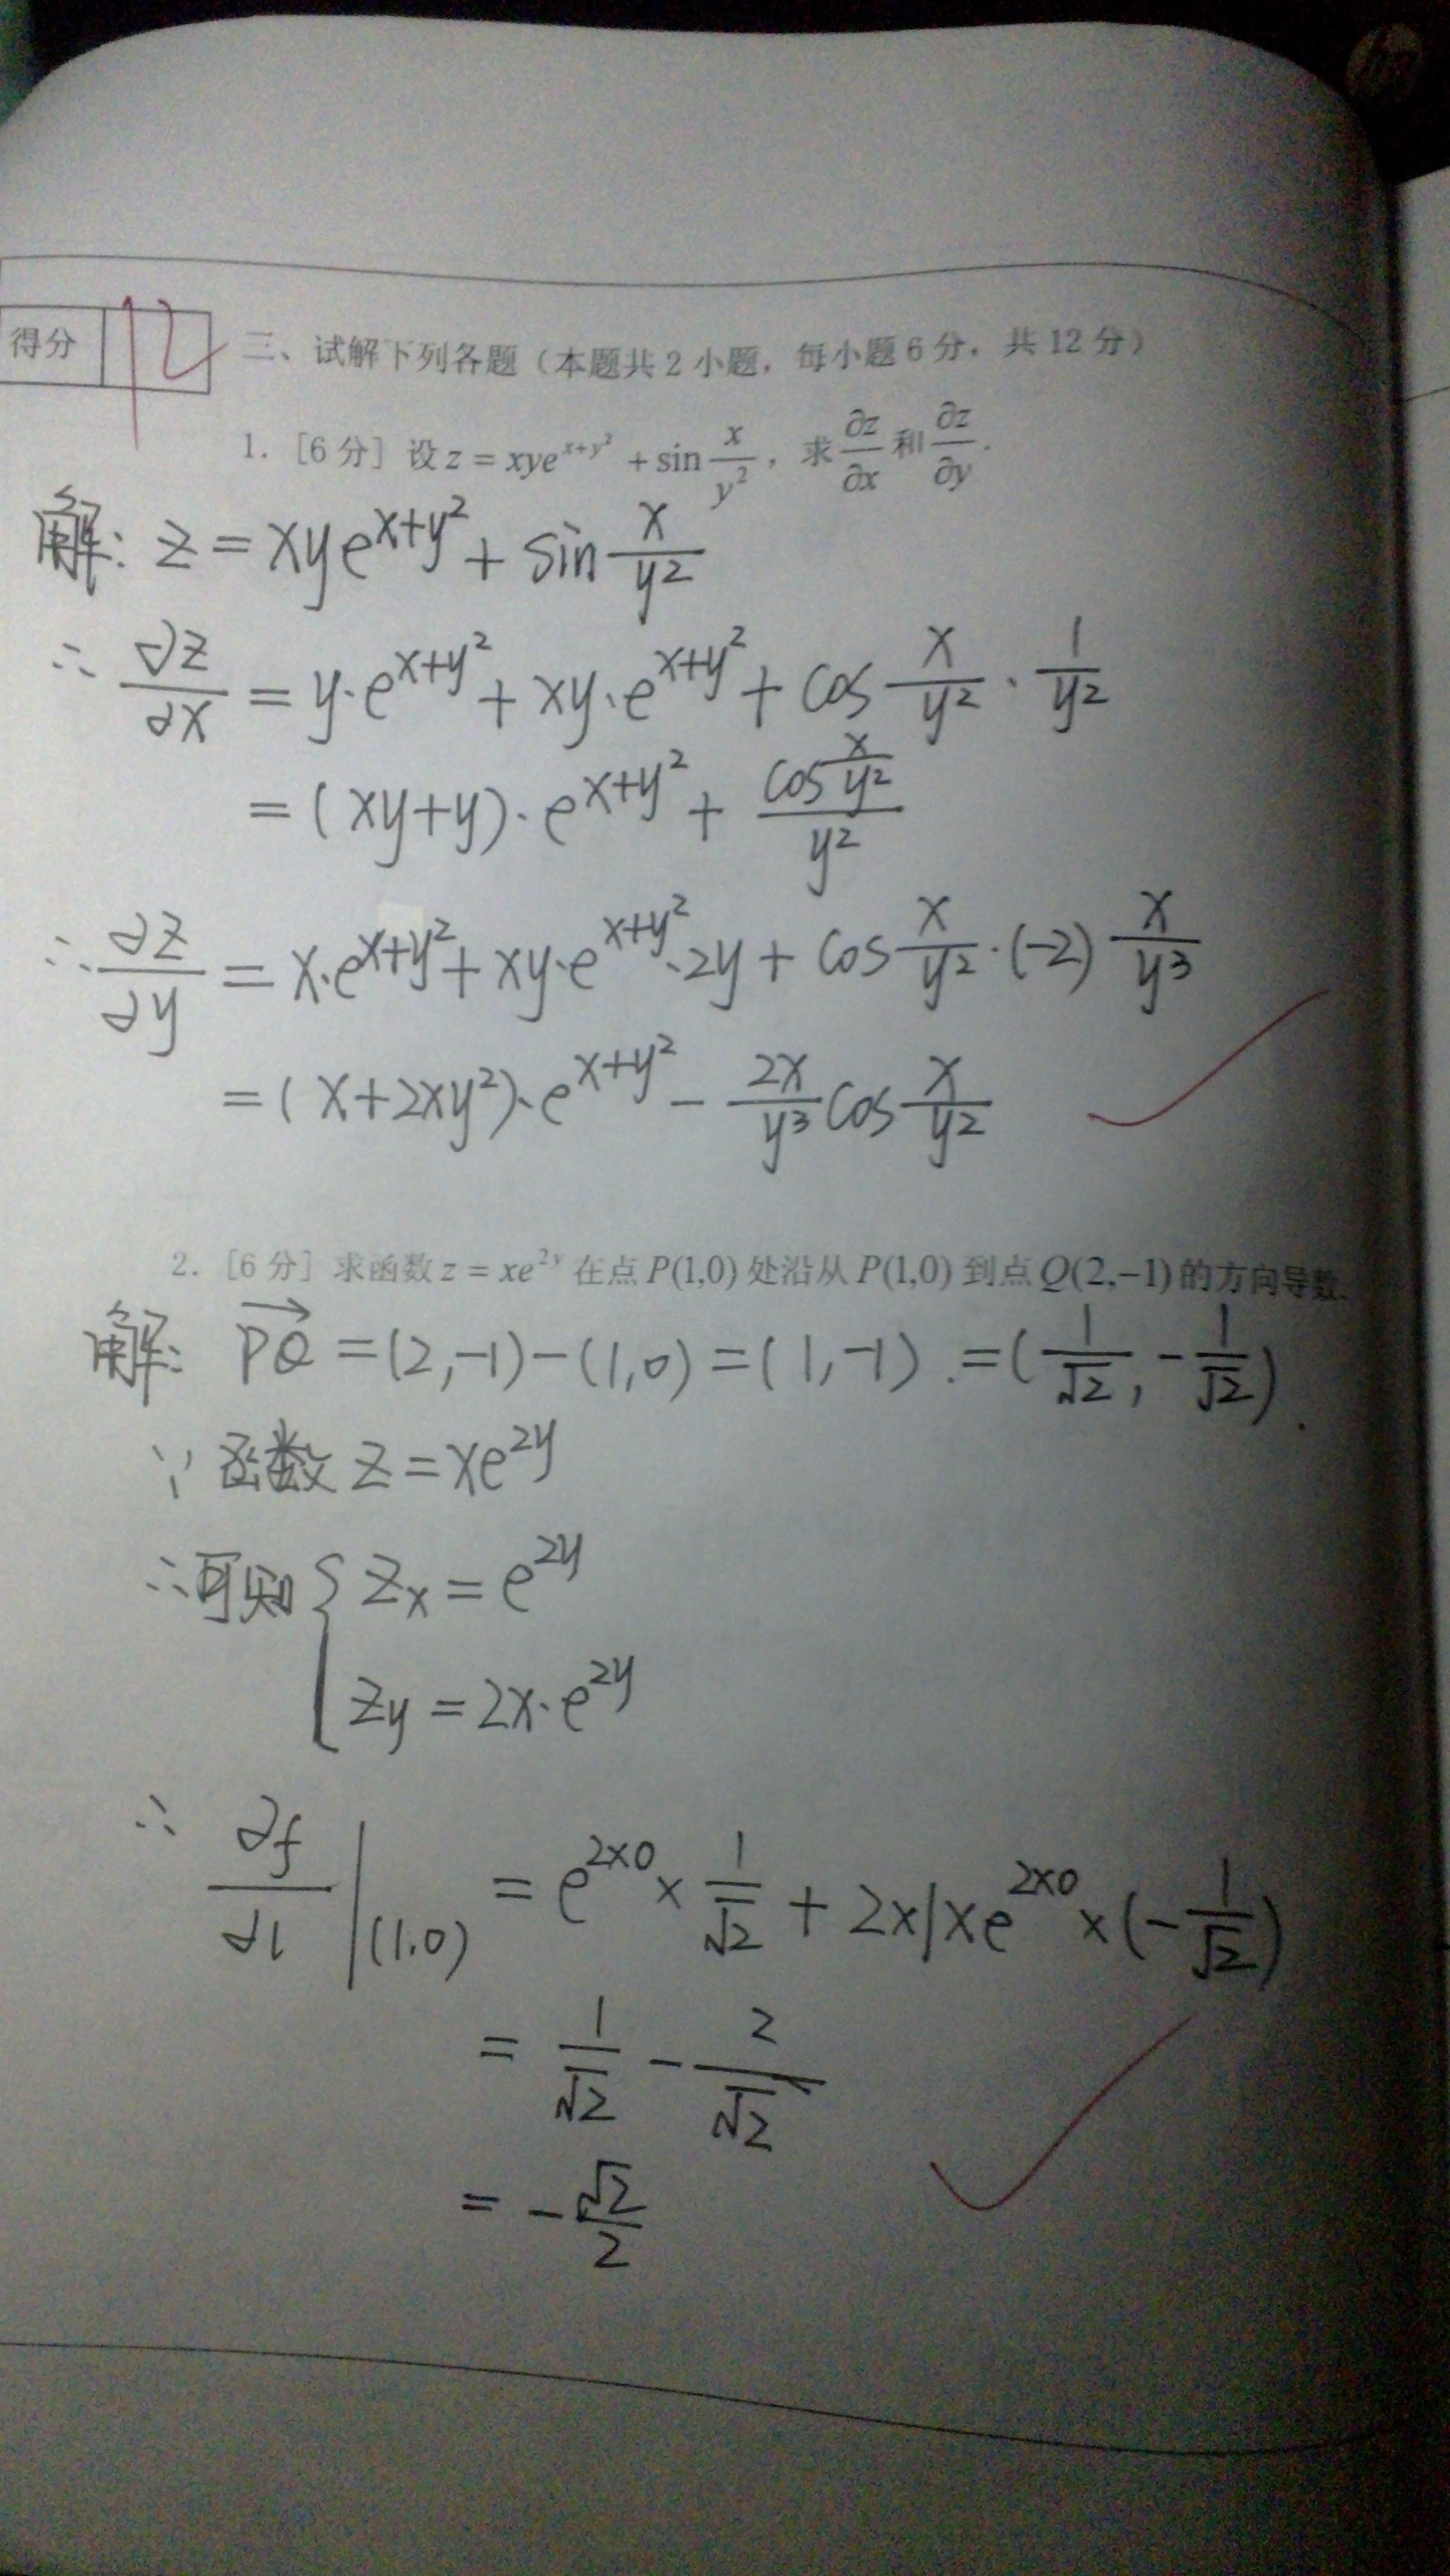 得分 12
三、试解下列各题（本题共 2 小题，每小题 6 分，共 12 分）
1. [6 分] 设 z = xye^{x+y²} + sin x/y²，求 ∂z/∂x 和 ∂z/∂y.
解: z = xye^{x+y²} + sin x/y²
∴ ∂z/∂x = y·e^{x+y²} + xy·e^{x+y²} + cos x/y² · 1/y²
= (xy+y)·e^{x+y²} + (cos x/y²)/y²
∴ ∂z/∂y = x·e^{x+y²} + xy·e^{x+y²}·2y + cos x/y² ·(-2) x/y³
= (x+2xy²)·e^{x+y²} - 2x/y³ cos x/y²
2. [6 分] 求函数 z = xe^{2y} 在点 P(1,0) 处沿从 P(1,0) 到点 Q(2,-1) 的方向导数.
解: PQ→ = (2,-1)-(1,0) = (1,-1). = (1/√2, -1/√2).
∵ 函数 z = xe^{2y}
∴可知 { Zx = e^{2y}
Zy = 2x·e^{2y}
∴ ∂f/∂l |(1.0) = e^{2×0} × 1/√2 + 2×1×e^{2×0} × (-1/√2)
= 1/√2 - 2/√2
= -√2/2